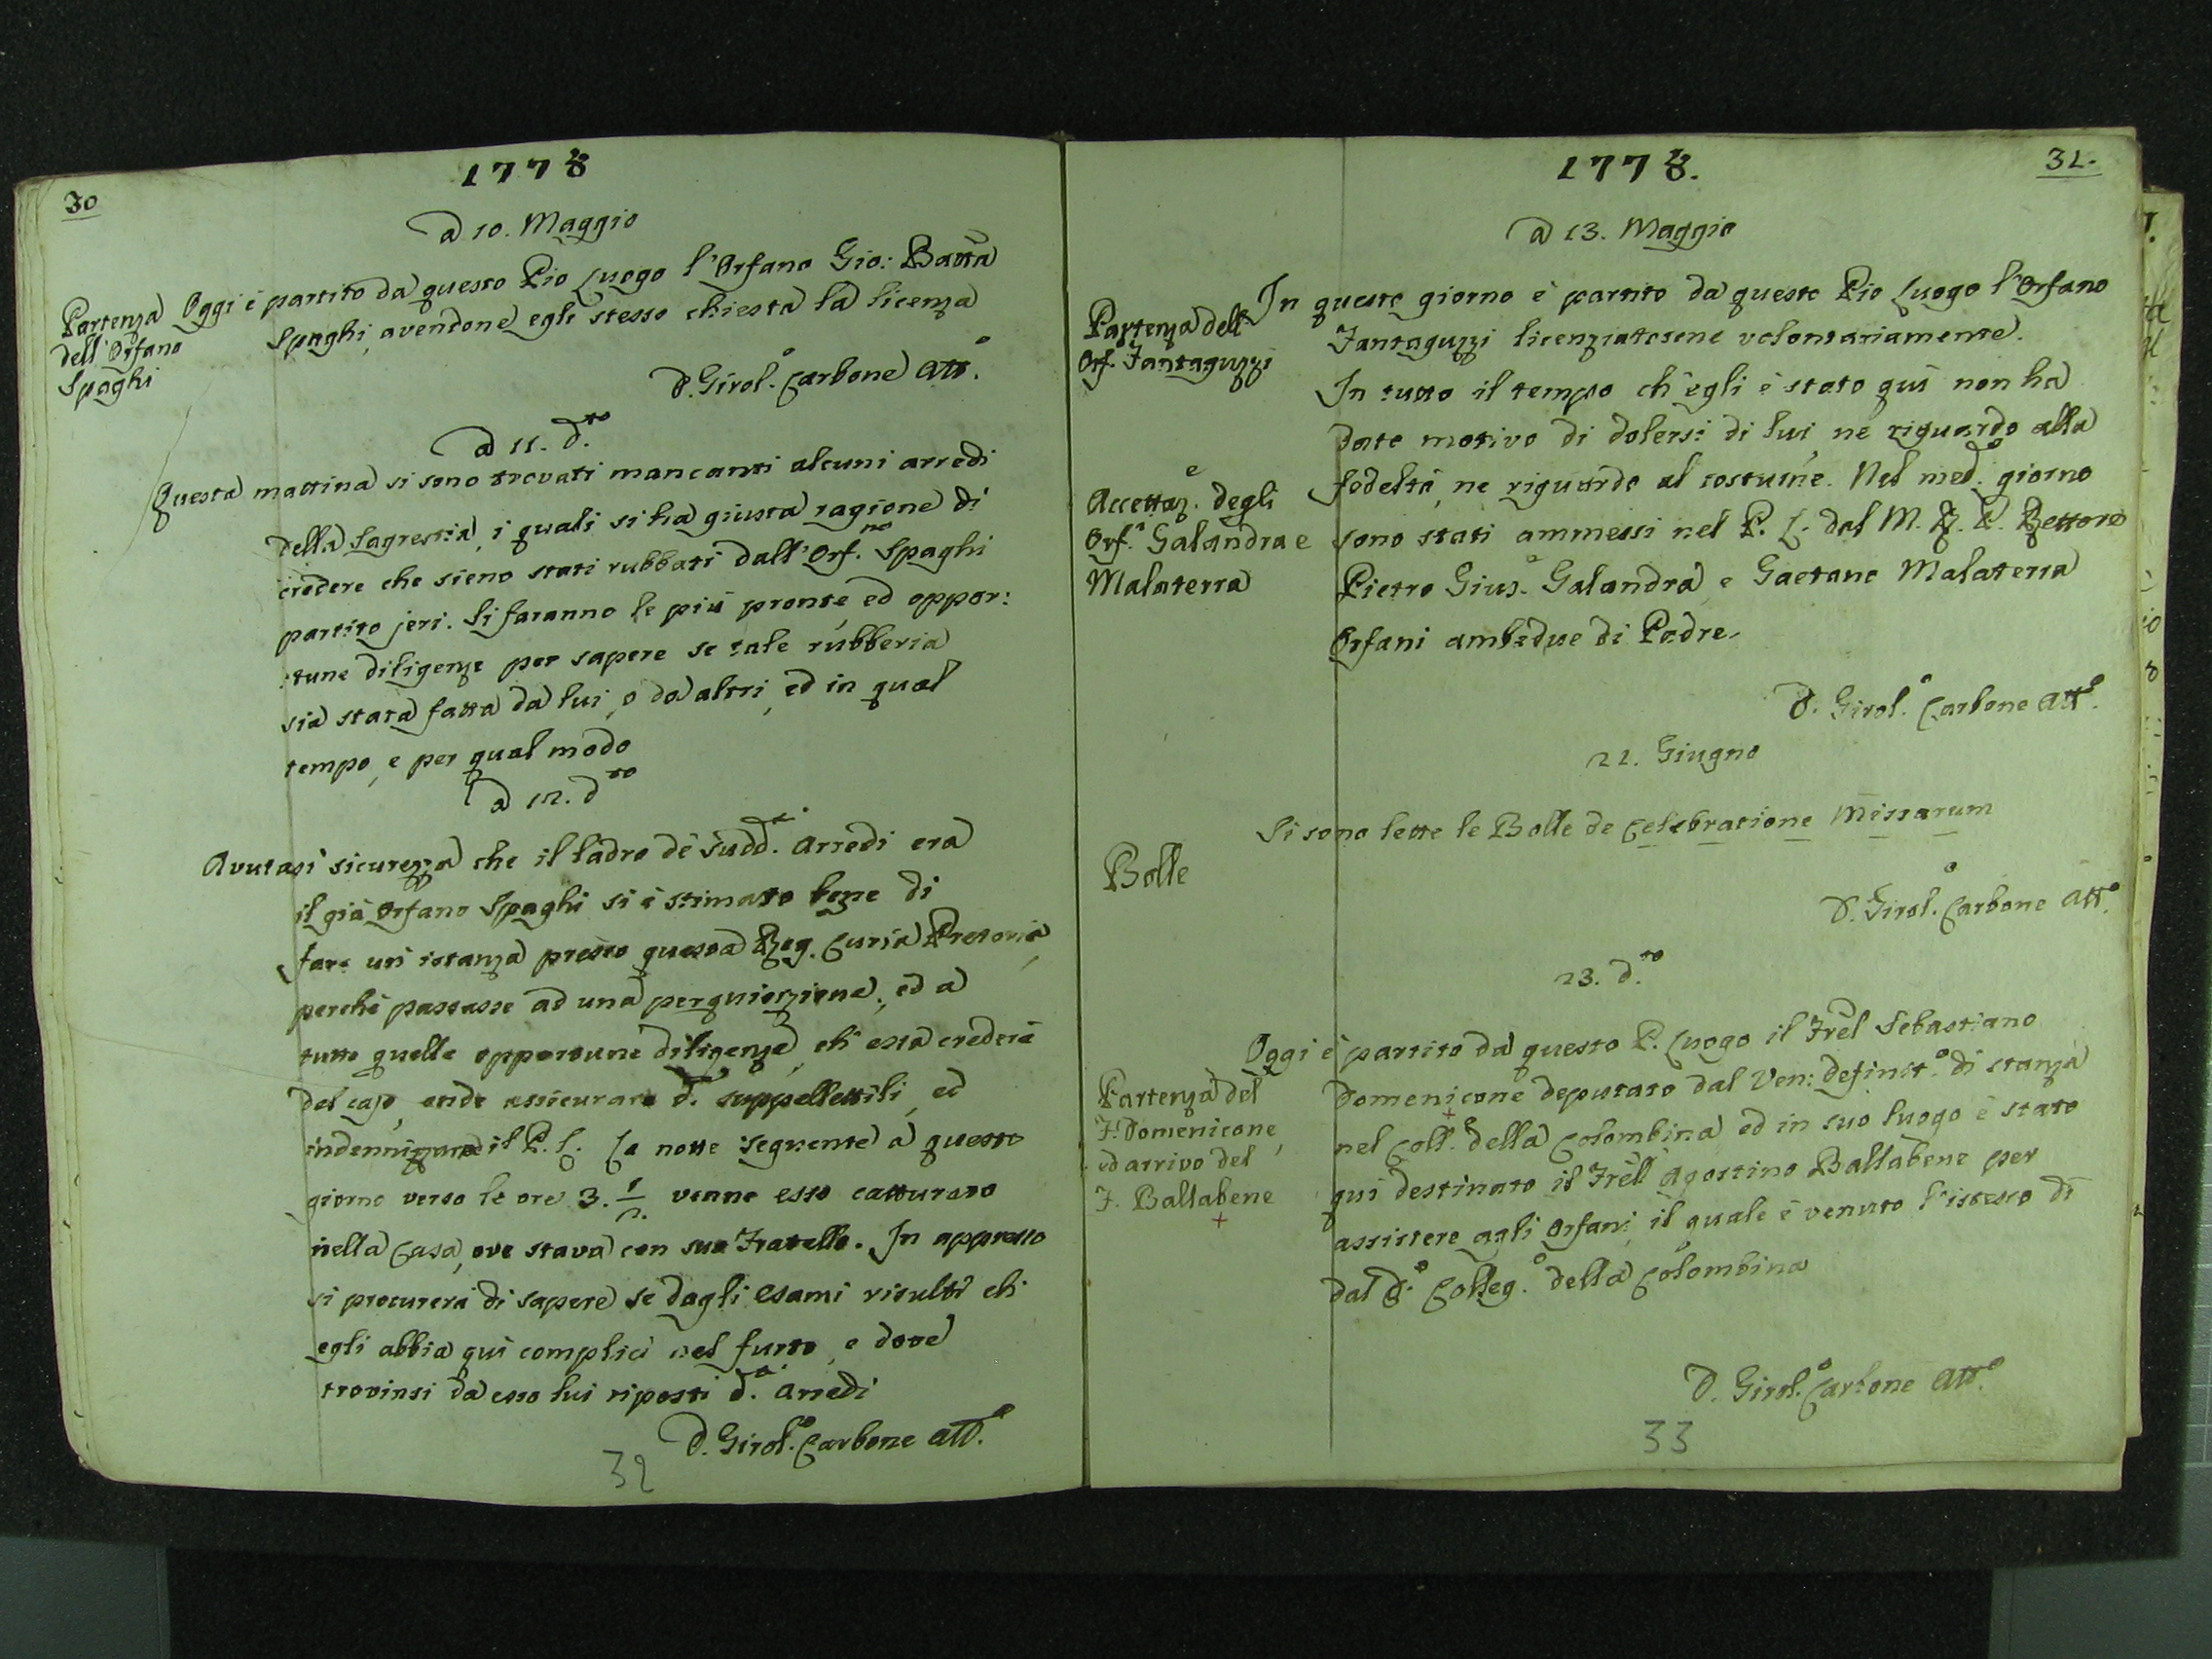 30
1778
a 10. Maggio
Partenza
dell'Orfano
Spaghi
Oggi è partito da questo Pio Luogo l'Orfano Gio: Batta
Spaghi, avendone egli stesso chiesta la licenza
D. Girol.o Carbone Att.o
a 11. d.to
Questa mattina si sono trovati mancanti alcuni arredi
della Sagrestia, i quali si ha giusta ragione di
credere che sieno stati rubbati dall'Orf.no Spaghi
partito jeri. Si faranno le più pronte, ed oppor:
:tune diligenze per sapere se tale rubberia
sia stata fatta da lui, o da altri, ed in qual
tempo, e per qual modo
a 12. d.to
Avutasi sicurezza che il ladro de' sudd.i Arredi era
il già Orfano Spaghi si è stimato bene di
fare un' istanza presso questa Reg. Curia Pretoria,
perchè passasse ad una perquisizione, ed a
tutte quelle opportune diligenze, ch'essa crederà
del caso, onde assicurare d.e suppellettili, ed
indennizzare il P. L. La notte seguente a questo
giorno verso le ore 3. 1/2. venne esso catturato
nella Casa, ove stava con suo Fratello. In appresso
si procurerà di sapere se dagli esami risulti ch'
egli abbia qui complici nel furto, e dove
trovinsi da esso lui riposti d.i Arredi
D. Girol.o Carbone Att.o
32
1778.
31.
a 13. Maggio
Partenza dell'
Orf.o Fantaguzzi
In questo giorno è partito da questo Pio Luogo l'Orfano
Fantaguzzi licenziatosene volontariamente.
In tutto il tempo ch'egli è stato quì non ha
dato motivo di dolersi di lui, nè riguardo alla
fedeltà, ne riguardo al costume. Nel med.o giorno
Accettaz.e degli
Orf.i Galandra e
Malaterra
sono stati ammessi nel P. L. dal M. R. P. Rettore
Pietro Gius.e Galandra, e Gaetano Malaterra
Orfani ambedue di Padre.
D. Girol.o Carbone Att.o
22. Giugno
Bolle
Si sono lette le Bolle de Celebratione Missarum
D. Girol.o Carbone Att.o
23. d.to
Partenza del
F. Domenicone,
ed arrivo del
F. Ballabene
Oggi è partito da questo P. Luogo il Frèl Sebastiano
Domenicone deputato dal Ven: Definit.o di stanza
nel Coll.o della Colombina, ed in suo luogo è stato
quì destinato il Frèll Agostino Ballabene per
assistere agli Orfani, il quale è venuto l'istesso dì
dal d.o Colleg.o della Colombina
D. Girol.o Carbone Att.o
33